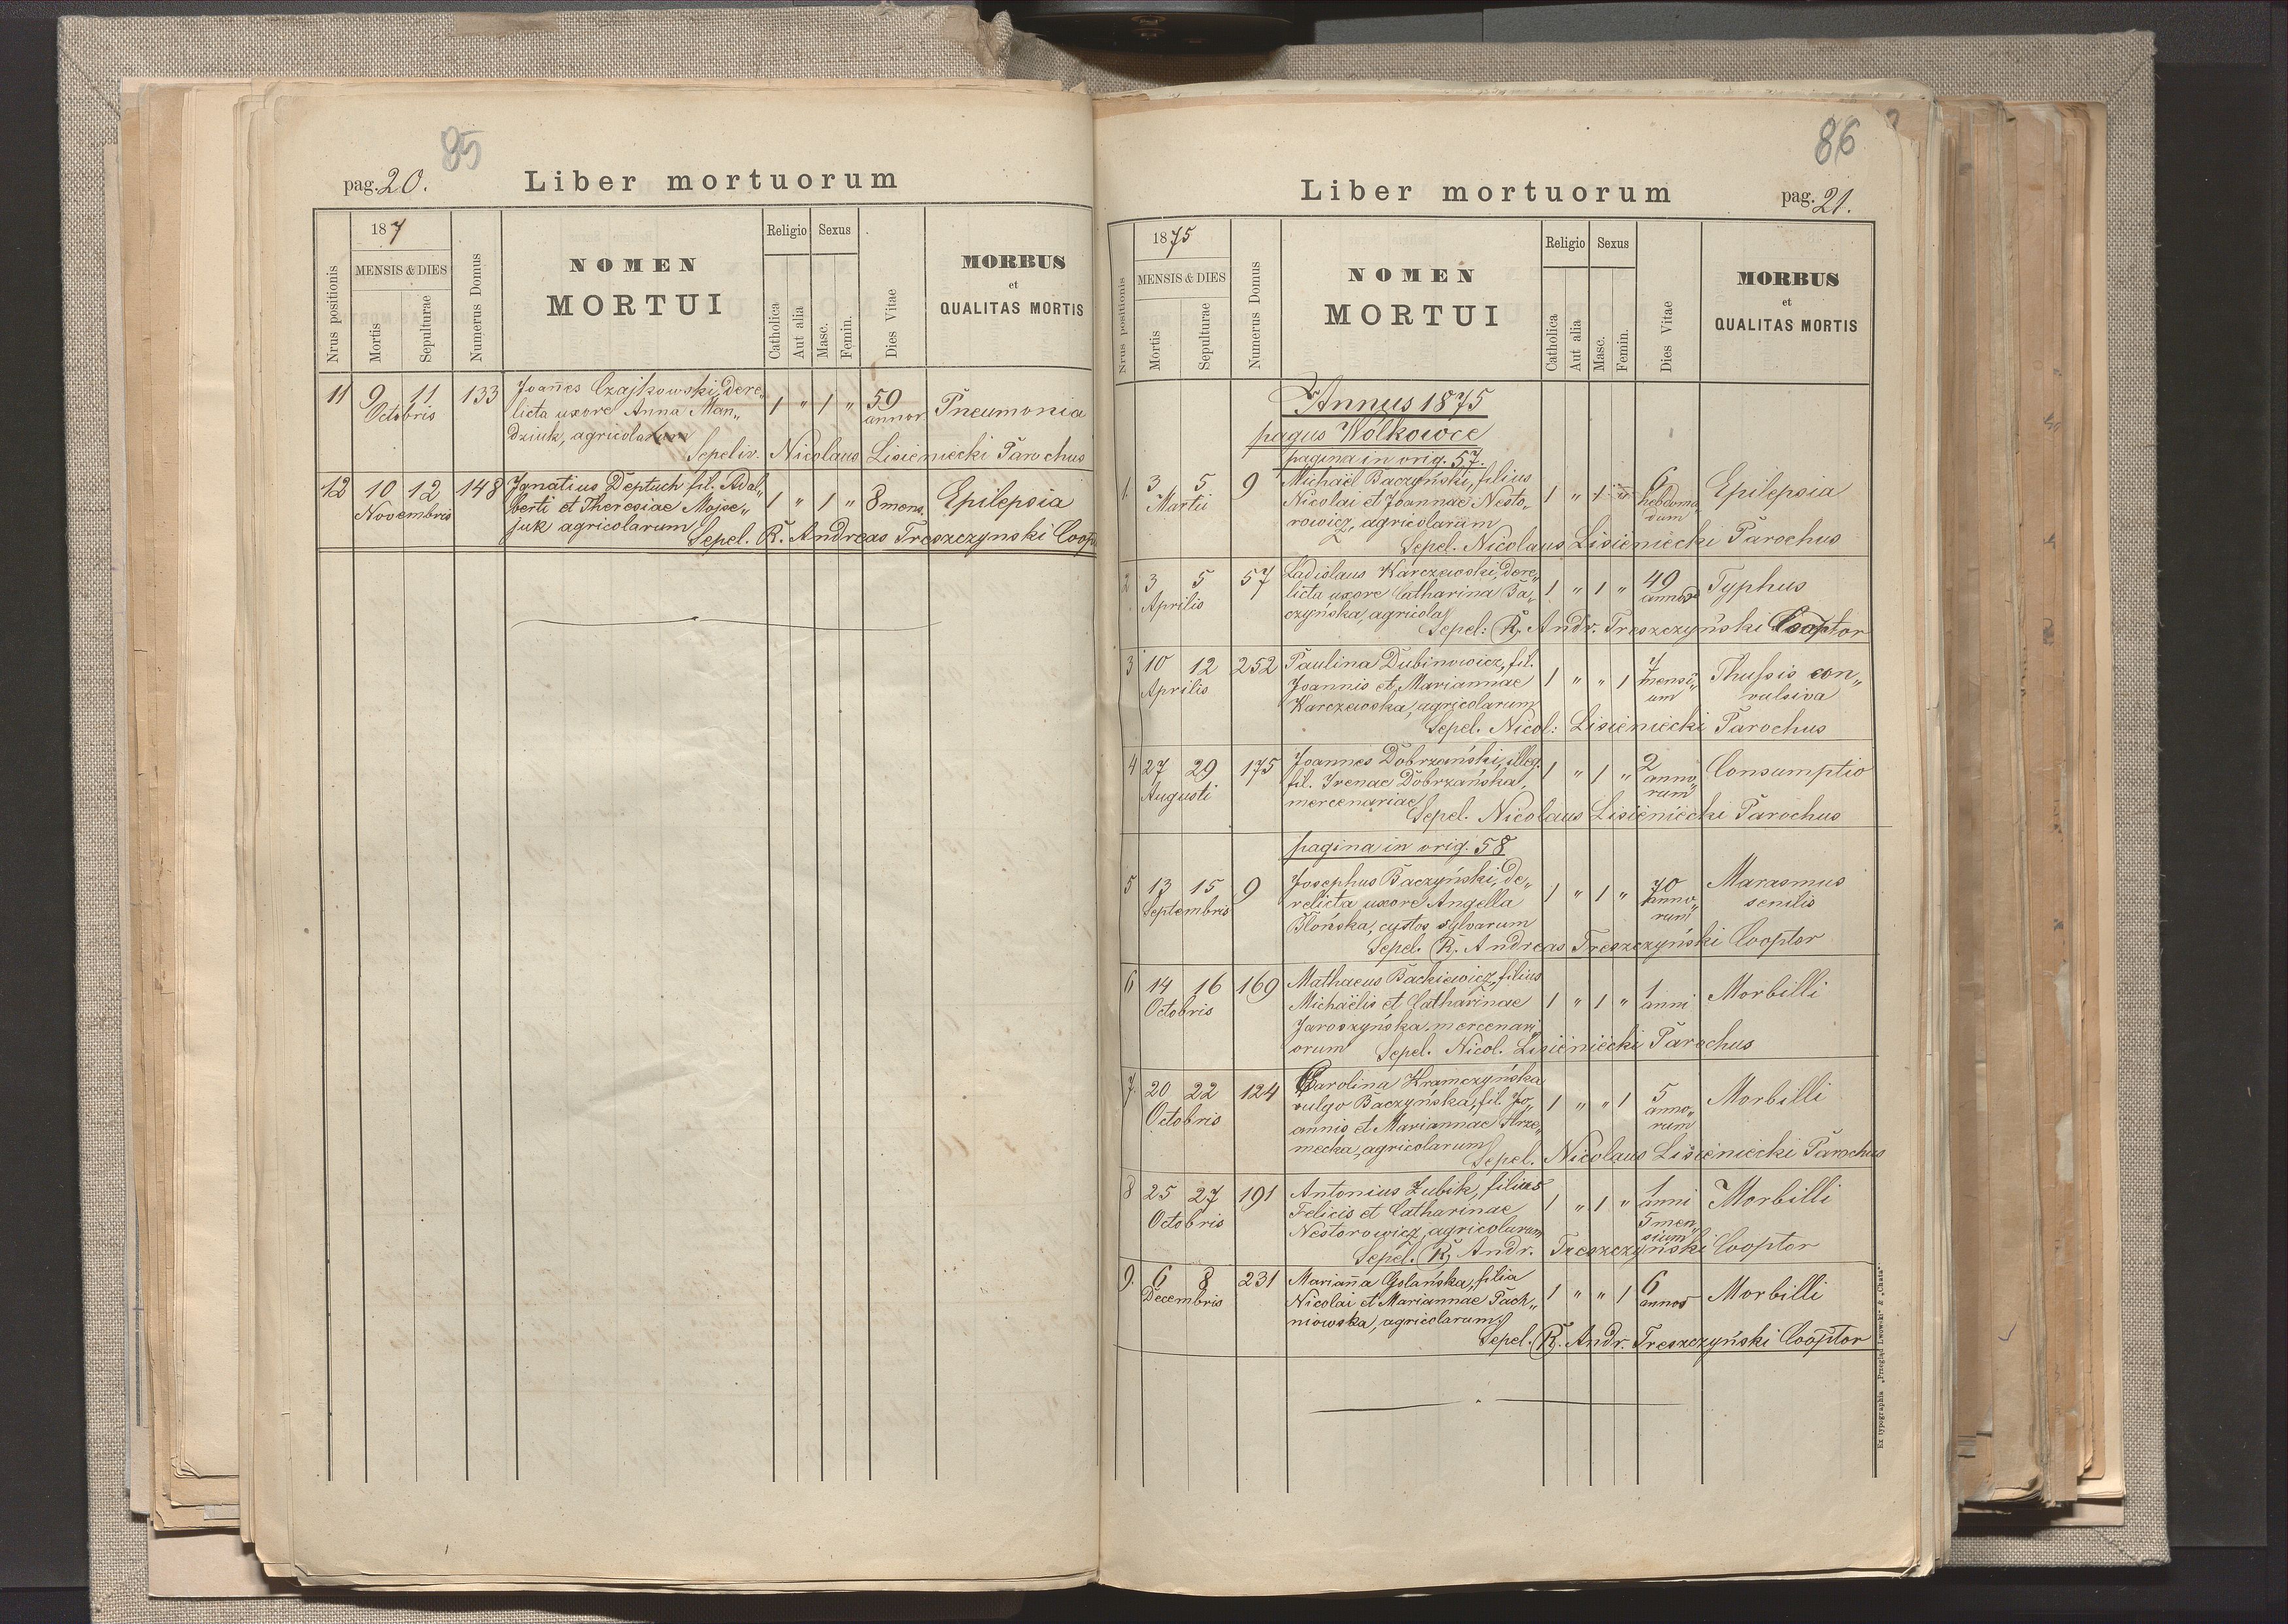 85
pag. 20.
Liber mortuorum
Nrus positionis
187
MENSIS & DIES
Mortis
Sepulturae
Numerus Domus
NOMEN
MORTUI
Religio
Catholica
Aut alia
Sexus
Masc.
Femin.
Dies Vitae
MORBUS
et
QUALITAS MORTIS
11 9 11 133 Joannes Czajkowski, dere„ 1 „ 1 „ 59 Pneumonia
Octobris licta uxore Anna Man„ annor
dziuk, agricola
Sepeliv. Nicolaus Lisieniecki Parochus
12 10 12 148 Ignatius Deptuch fil. Adal„ 1 „ 1 „ 8 mens. Epilepsia
Novembris berti et Theresiae Mojse„
juk agricolarum
Sepel. R. Andreas Treszczynski Coop
86
Liber mortuorum
pag. 21.
Nrus positionis
1875
MENSIS & DIES
Mortis
Sepulturae
Numerus Domus
NOMEN
MORTUI
Religio
Catholica
Aut alia
Sexus
Masc.
Femin.
Dies Vitae
MORBUS
et
QUALITAS MORTIS
Annus 1875
pagus Wolkowce
pagina in orig. 57.
1. 3 5 9 Michaël Baczyński, filius 1 „ 1 „ 6 Epilepsia
Martii Nicolai et Joannae Nesto„ hebdoma
rowicz, agricolarum dum
Sepel. Nicolaus Lisieniecki Parochus
2 3 5 57 Ladislaus Karczewski, dere„ 1 „ 1 „ 49 Typhus
Aprilis licta uxore Catharina Ba„
czyńska, agricola
Sepel: R. Andr. Treszczyński Cooptor
3 10 12 252 Paulina Dubinowicz, fil. 1 „ „ 1 7 Thussis con„
Aprilis Joannis et Mariannae mensi„ vulsiva
Karczewska, agricolarum um
Sepel. Nicol: Lisieniecki Parochus
4 27 29 175 Joannes Dobrzański, illeg. 1 „ 1 „ 2 Consumptio
Augusti fil. Irenae Dobrzańska, anno„
mercenariae rum
Sepel. Nicolaus Lisieniecki Parochus
pagina in orig. 58
5 13 15 9 Josephus Baczyński, de„ 1 „ 1 „ 70 Marasmus
Septembris relicta uxore Angella anno„ senilis
Błońska, cystos sylvarum rum
Sepel. R. Andreas Treszczyński Cooptor
6 14 16 169 Mathaeus Backiewicz, filius 1 „ 1 „ 1 Morbilli
Octobris Michaëlis et Catharinae anni
Jaroszyńska mercenari
orum Sepel. Nicol. Lisieniecki Parochus
7. 20 22 124 Carolina Kramczyńska 1 „ „ 1 5 Morbilli
Octobris vulgo Baczyńska, fil. Jo„ anno„
annis et Mariannae Strze„ rum
mecka, agricolarum
Sepel. Nicolaus Lisieniecki Parochus
8 25 27 191 Antonius Zubik, filius 1 „ 1 „ 1 Morbilli
Octobris Felicis et Catharinae anni
Nestorowicz, agricolarum 5 men„
sium
Sepel. R. Andr. Treszczyński Cooptor
9. 6 8 231 Marianna Golańska, filia 1 „ „ 1 6 Morbilli
Decembris Nicolai et Mariannae Pach„ annor
niowska, agricolarum
Sepel. R. Andr. Treszczyński Cooptor
Ex typographia „Przegląd Lwowski“ & „Chata“.